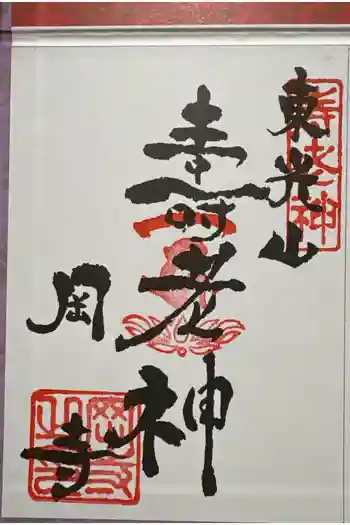 東光山
寿老神
壽老神
岡寺